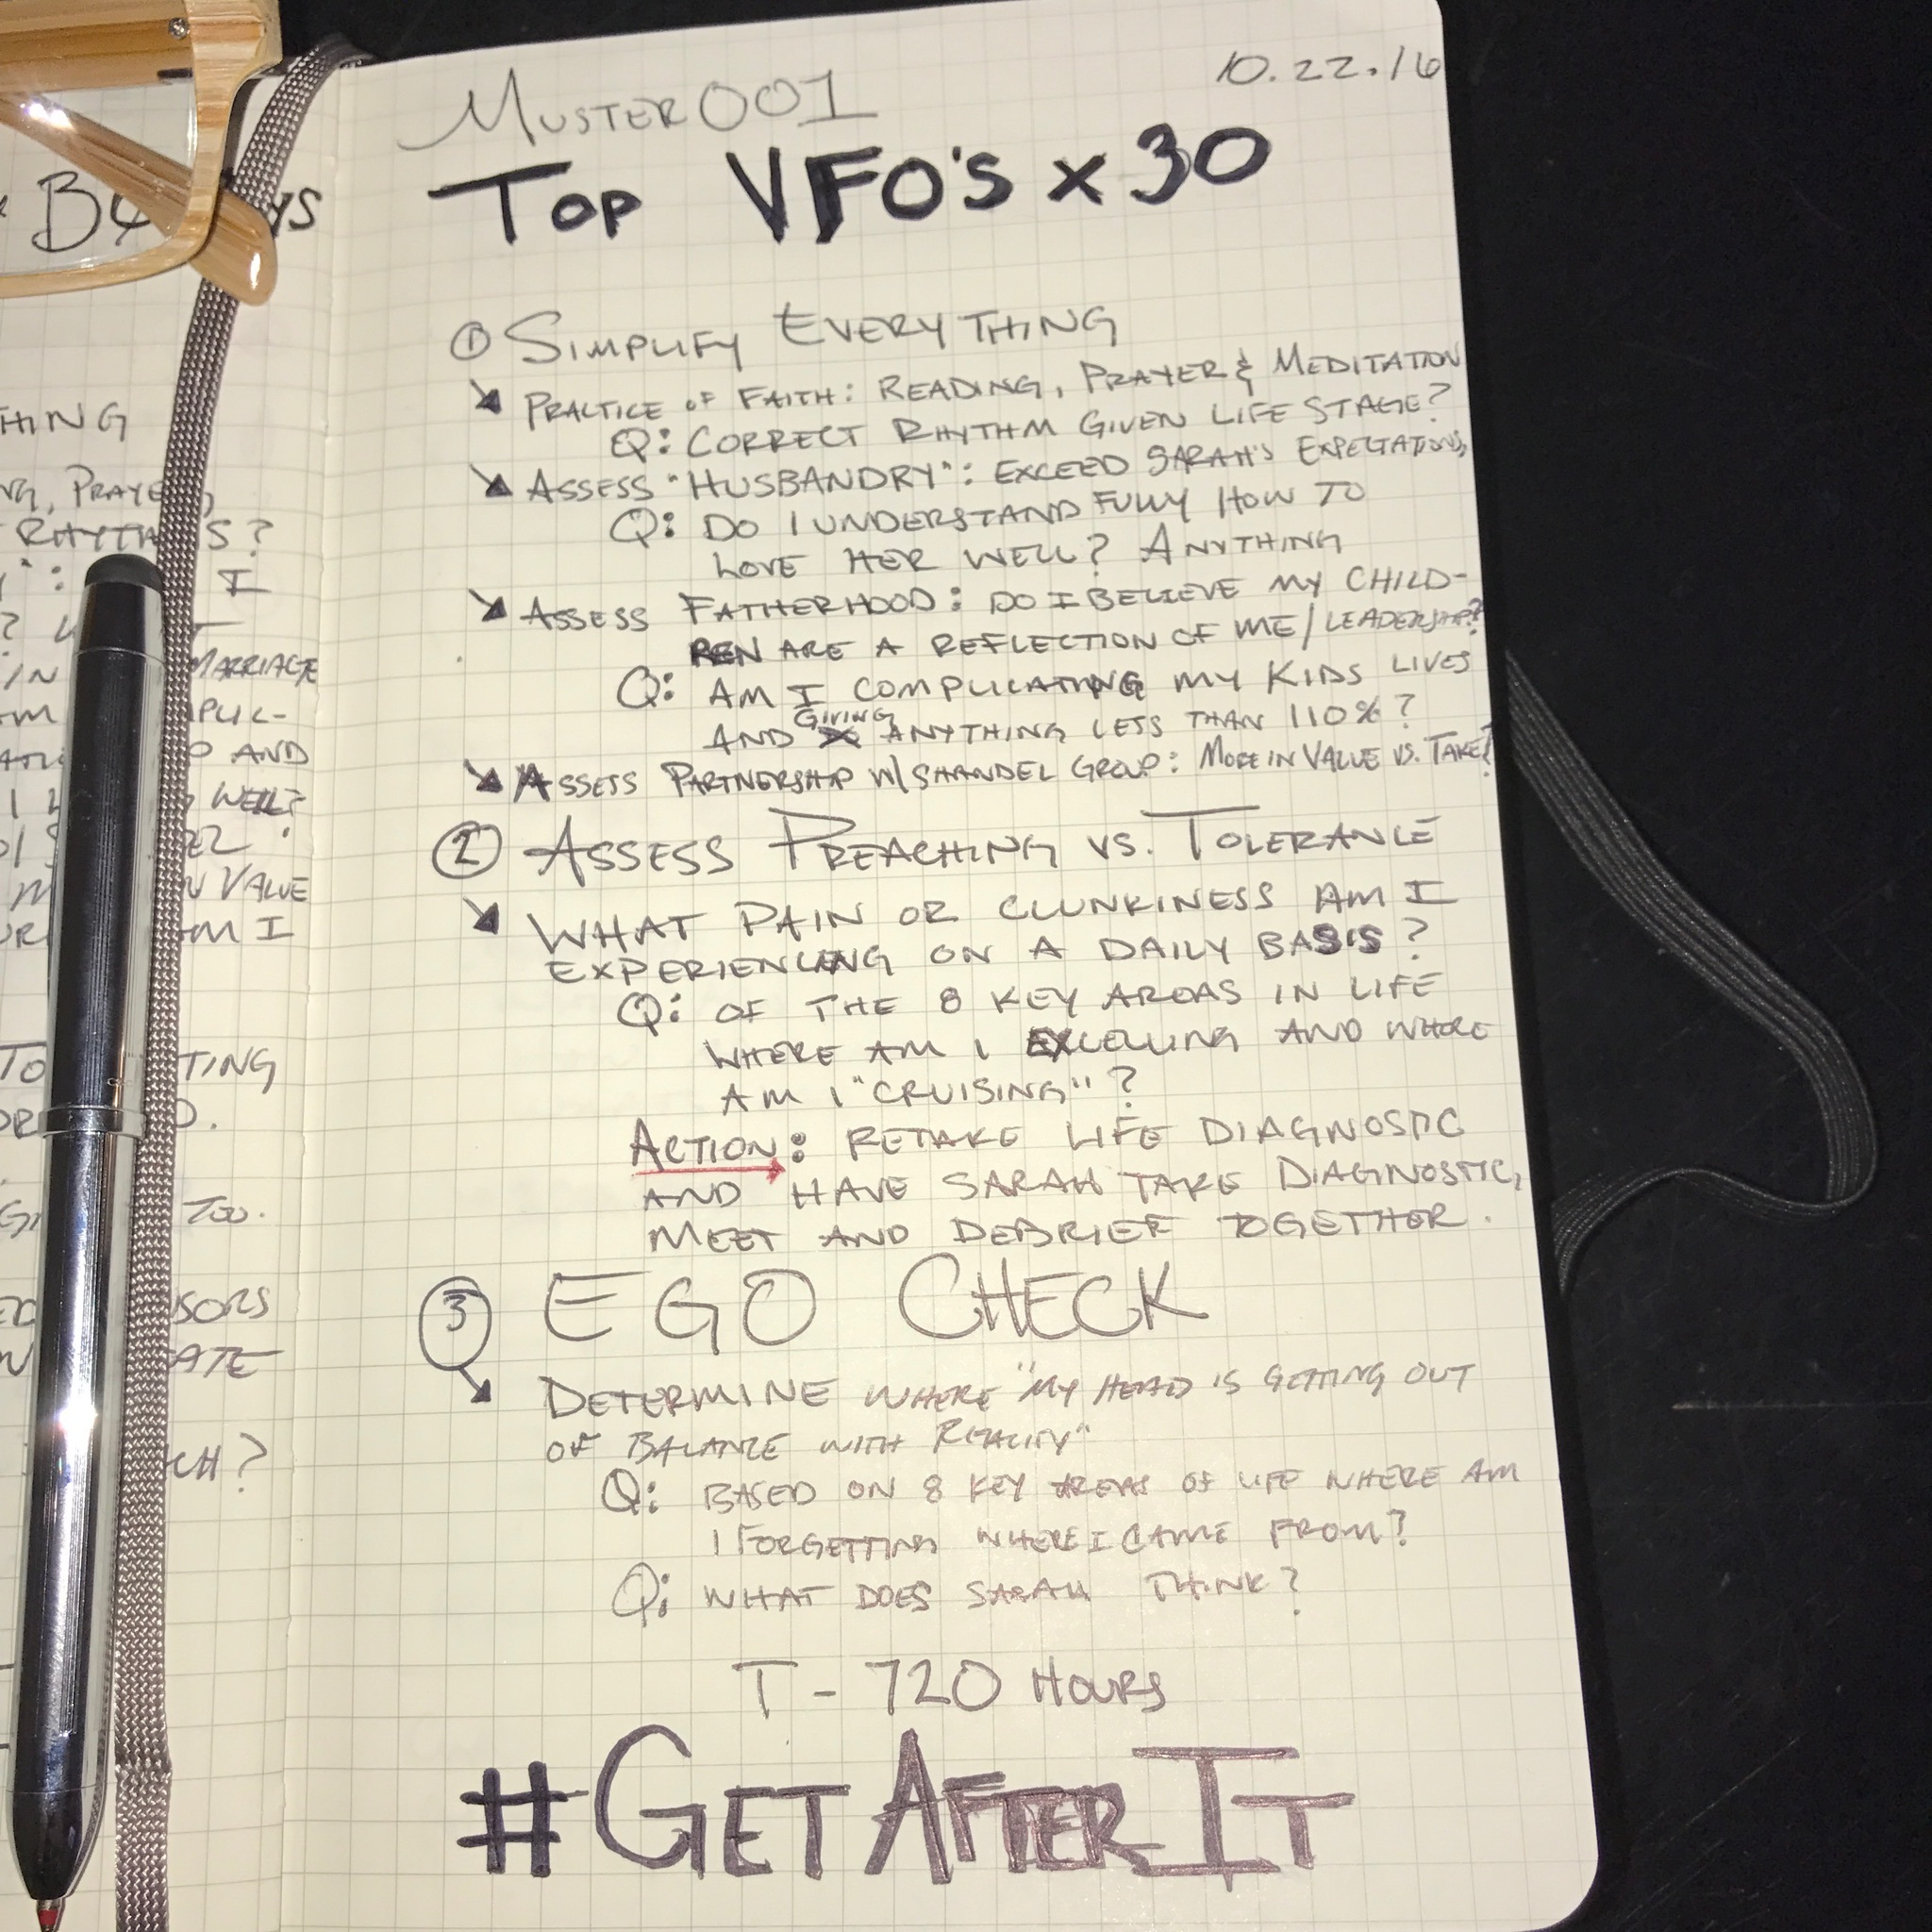 B
YS
HING
NG, PRAYE
RHYTH S?
": I
?
IN MARRIAGE
M PLIC-
ATI AND
I WELL?
N VALUE
AM I
TO TING
OR D.
TOO.
ED SORS
N ATE
CH?
MUSTER001
10.22.16
TOP VFO'S x 30
① SIMPLIFY EVERYTHING
↘ PRACTICE OF FAITH: READING, PRAYER & MEDITATION
Q: CORRECT RHYTHM GIVEN LIFE STAGE?
↘ ASSESS "HUSBANDRY": EXCEED SARAH'S EXPECTATIONS
Q: DO I UNDERSTAND FULLY HOW TO
LOVE HER WELL? ANYTHING
↘ ASSESS FATHERHOOD: DO I BELIEVE MY CHILD-
REN ARE A REFLECTION OF ME/LEADERSHIP?
Q: AM I COMPLICATING MY KIDS LIVES
AND GIVING ANYTHING LESS THAN 110%?
↘ ASSESS PARTNERSHIP W/SHANDEL GROUP: MORE IN VALUE VS. TAKE?
② ASSESS PREACHING VS. TOLERANCE
↘ WHAT PAIN OR CLUNKINESS AM I
EXPERIENCING ON A DAILY BASIS?
Q: OF THE 8 KEY AREAS IN LIFE
WHERE AM I EXCELLING AND WHERE
AM I "CRUISING"?
ACTION: RETAKE LIFE DIAGNOSTIC
AND HAVE SARAH TAKE DIAGNOSTIC,
MEET AND DEBRIEF TOGETHER.
③ EGO CHECK
↘ DETERMINE WHERE "MY HEAD IS GETTING OUT
OF BALANCE WITH REALITY"
Q: BASED ON 8 KEY AREAS OF LIFE WHERE AM
I FORGETTING WHERE I CAME FROM?
Q: WHAT DOES SARAH THINK?
T - 720 HOURS
#GETAFTERIT